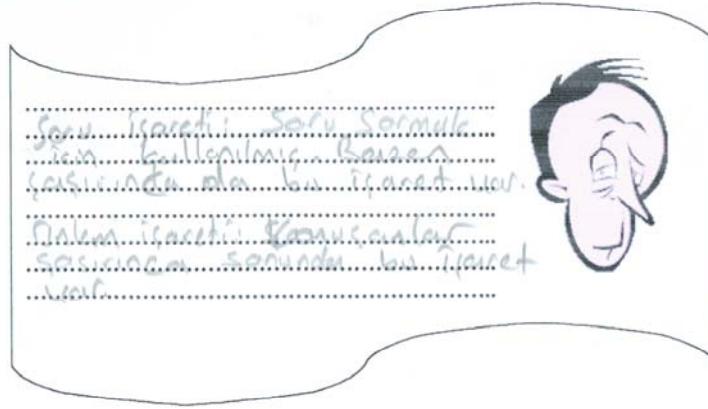 Soru işareti: Soru sormak
için kullanılmış. Bazen
şaşırınca da bu işaret var.
Ünlem işareti: Konuşanlar
şaşırınca sonunda bu işaret
var.